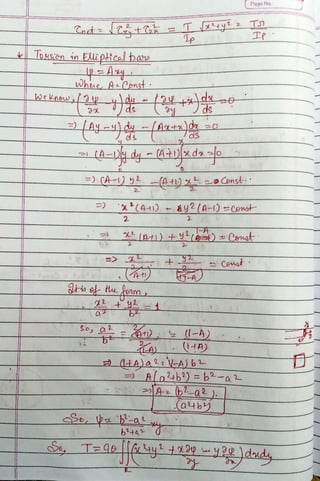 Page No.
τnet = √(τ²xy + τ²zx) = T/Ip √(x²+y²) = Tn/Ip
* Torsion in Elliptical bars
ψ = Axy.
where A = Const.
We know, (∂ψ/∂x - y) dy/ds - (∂ψ/∂y + x) dx/ds = 0
⇒ (Ay - y) dy/ds - (Ax+x) dx/ds = 0
⇒ (A-1) ∫ y dy - (A+1) ∫ x dx = ∫0
⇒ (A-1) y²/2 - (A+1) x²/2 = Const.
⇒ x²/2 (A+1) - y²/2 (A-1) = Const
⇒ x²/2 (A+1) + y²/2 (1-A) = Const.
⇒ x²/(2/(A+1)) + y²/(2/(1-A)) = Const.
It is of the form,
x²/a² + y²/b² = 1
So, a²/b² = (2/(A+1))/(2/(1-A)) = (1-A)/(1+A)
⇒ (1+A)a² = (1-A)b²
⇒ A(a²+b²) = b²-a²
⇒ A = (b²-a²)/(a²+b²).
So, ψ = (b²-a²)/(b²+a²) xy
So, T = Gθ ∬R (x²+y² + x ∂ψ/∂y - y ∂ψ/∂x) dxdy